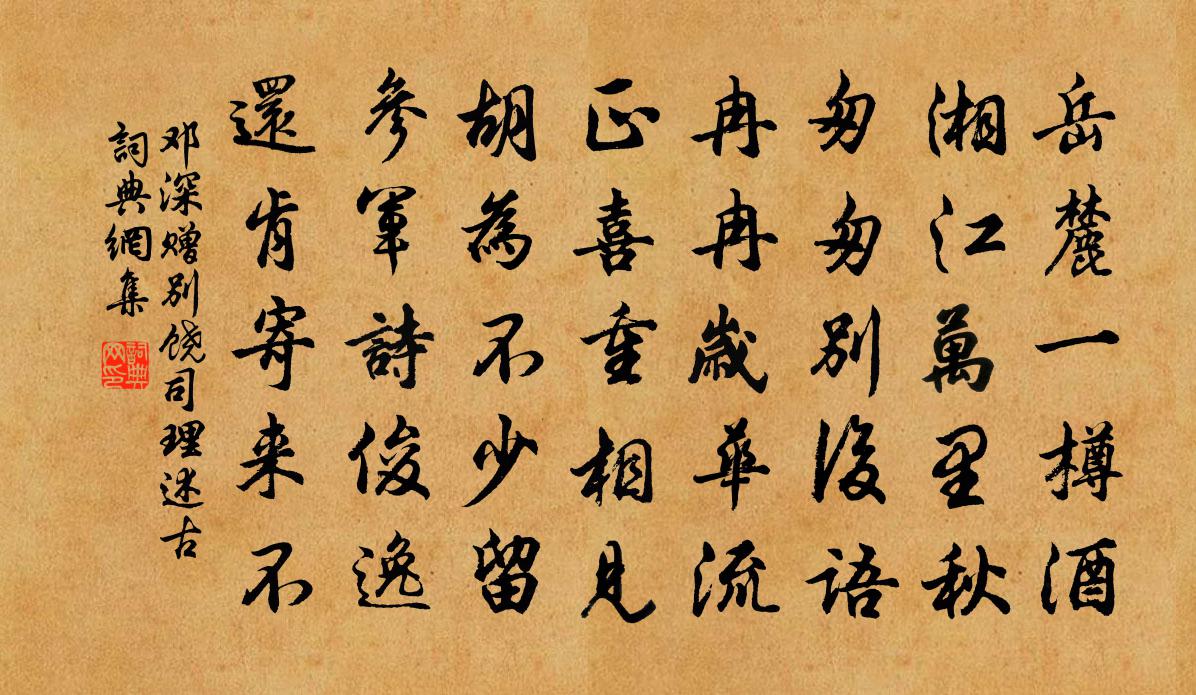 岳麓一樽酒
湘江萬里秋
匆匆別後語
冉冉歲華流
正喜重相見
胡為不少留
參軍詩俊逸
還肯寄来不
邓深赠别饶司理述古
詞典網集
詞典网印